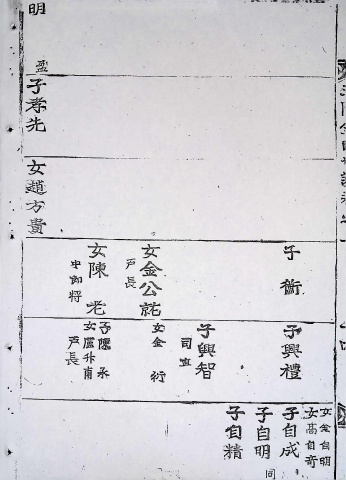 明
盈
子孝先
女趙方貴
子衜
女金公祐
戶長
女陳老
中郞將
子興禮
子興智
司直
女金行
子陳永
女盧升甫
戶長
女金自明
女高自奇
子自成
子自明
同
子自精